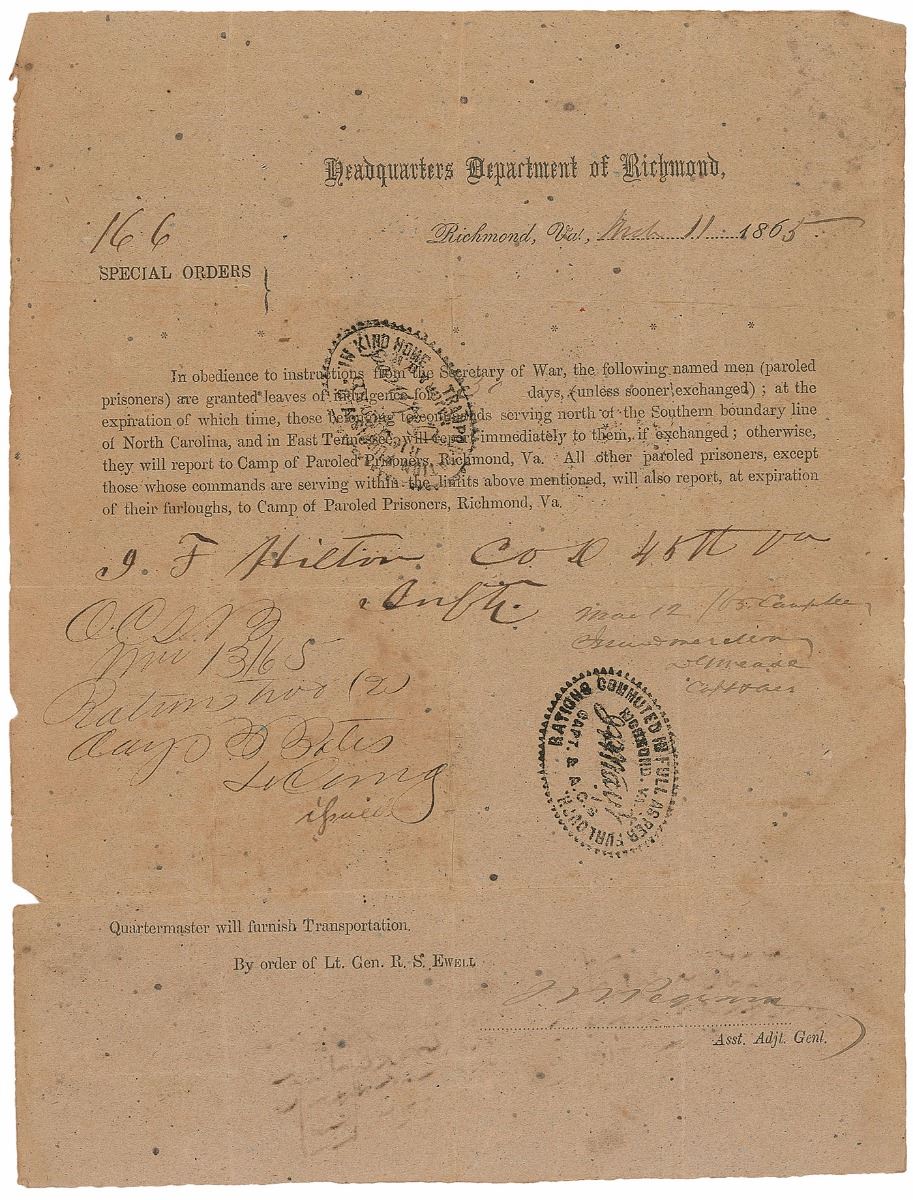 Headquarters Department of Richmond,
166
Richmond, Va., Mch 11 1865.
SPECIAL ORDERS }
* * * * * *
In obedience to instructions from the Secretary of War, the following named men (paroled
prisoners) are granted leaves of indulgence for 30 days, (unless sooner exchanged) ; at the
expiration of which time, those belonging to commands serving north of the Southern boundary line
of North Carolina, and in East Tennessee, will report immediately to them, if exchanged ; otherwise,
they will report to Camp of Paroled Prisoners, Richmond, Va. All other paroled prisoners, except
those whose commands are serving within the limits above mentioned, will also report, at expiration
of their furloughs, to Camp of Paroled Prisoners, Richmond, Va.
IN KIND HOME TRANSPO
F Hilton Co 45th Va
Infty.
Mar 12 /65
13/65
Rations two (2)
days
RATIONS COMMUTED IN FULL AS PER FURLOUGH.
RICHMOND, VA.
CAPT. & A. C. S.
Quartermaster will furnish Transportation.
By order of Lt. Gen. R. S. EWELL
Pegram
Asst. Adjt. Genl.